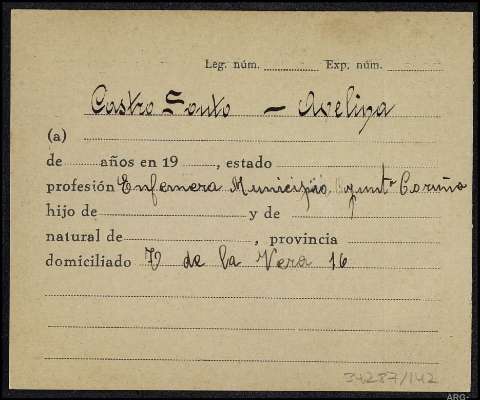 Leg. núm. Exp. núm.
Castro Souto — Avelina
(a)
de años en 19 , estado
profesión Enfermera Municipio Coruña
hijo de y de
natural de , provincia
domiciliado de la Vera 16
34287/142
ARG-